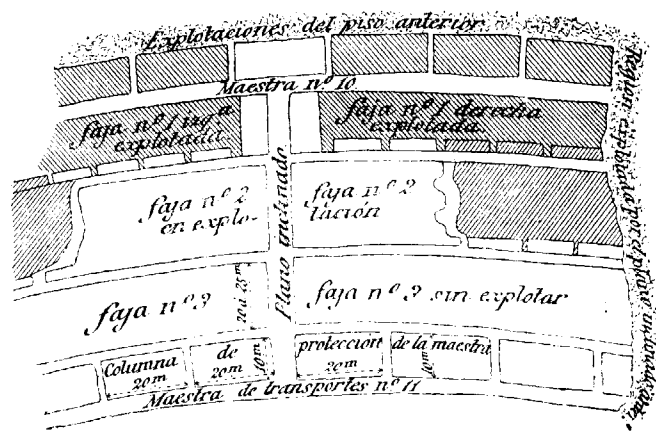 Explotaciones del piso anterior
Maestra nº 10
faja nº 1 izqª
explotada
faja nº 1 derecha
explotada
Plano inclinado
faja nº 2
en explo-
faja nº 2
tación
faja nº 3
20 á 25m
faja nº 3 sin explotar
Columna
20m
de
20m
10m
protección
20m
de la maestra
10m
Maestra de transportes nº 11
Región explotada por el plano inclinado